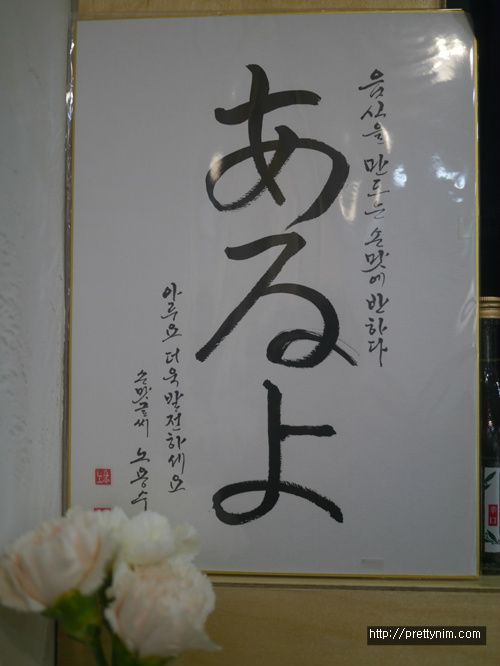 음식을 만드는 손맛에 반하다
あるよ
아루요 더욱 발전하세요
손맛글씨 노용수
http://prettynim.com